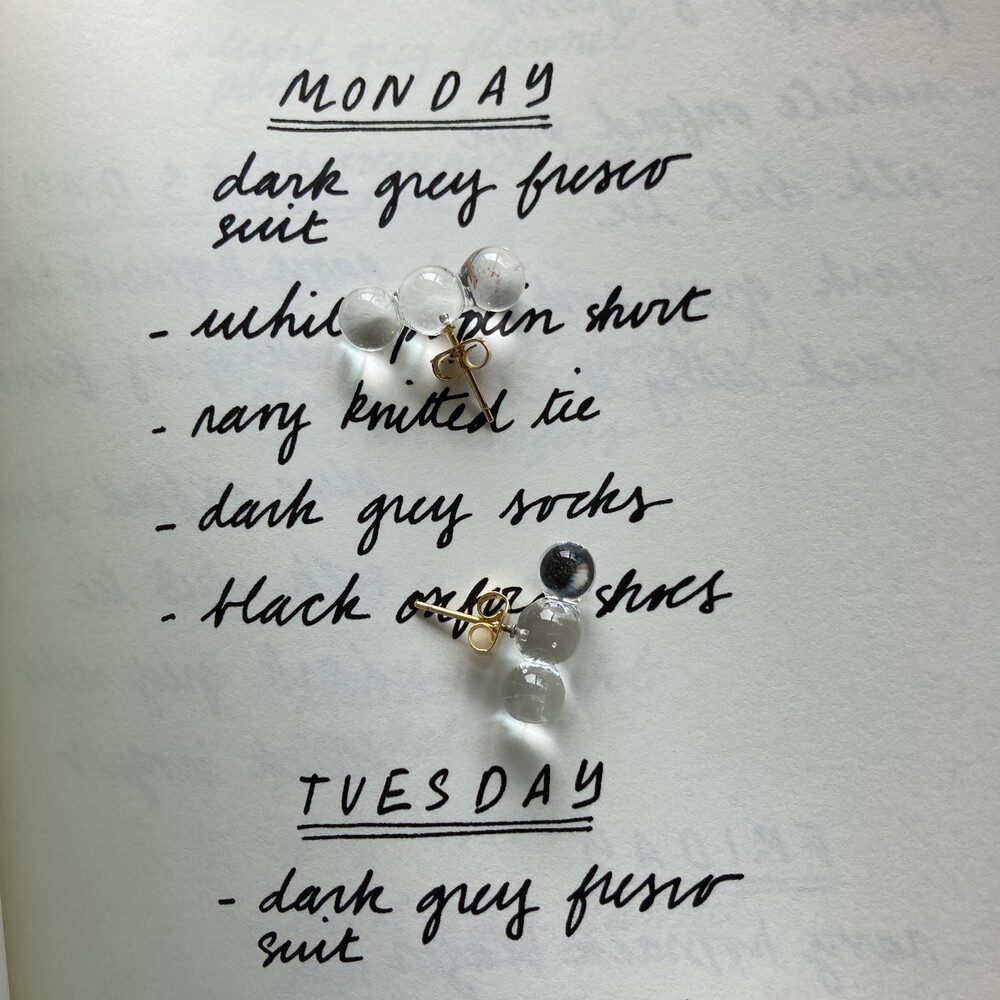 MONDAY
dark grey fresco
suit
- shirt
- navy knitted tie
- dark grey socks
- black shoes
TUESDAY
- dark grey fresco
suit